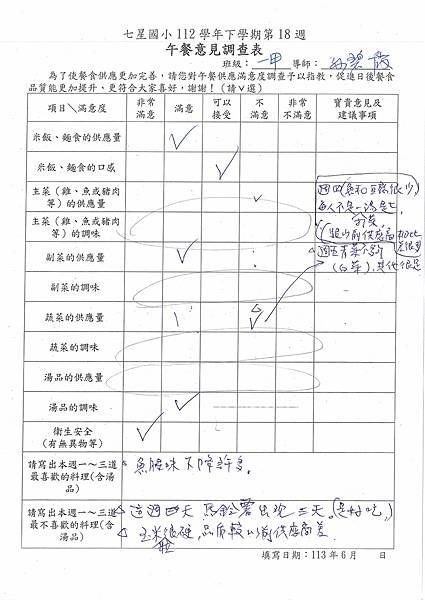 七星國小 112 學年下學期第 18 週
午餐意見調查表
班級： 一甲 導師：
為了使餐食供應更加完善，請您對午餐供應滿意度調查予以指教，促進日後餐食
品質能更加提升、更符合大家喜好，謝謝！（請∨選）
項目＼滿意度 非常滿意 滿意 可以接受 不滿意 非常不滿意 寶貴意見及建議事項
米飯、麵食的供應量
米飯、麵食的口感
主菜（雞、魚或豬肉等）的供應量
主菜（雞、魚或豬肉等）的調味
副菜的供應量
副菜的調味
蔬菜的供應量
蔬菜的調味
湯品的供應量
湯品的調味
衛生安全
（有無異物等）
週四
很少
每人不是一湯匙
跟以前供應商
差很多
週五青菜不夠
(白菜)，其他很足
請寫出本週一～三道最喜歡的料理(含湯品)
魚腥味下降許多。
請寫出本週一～三道最不喜歡的料理(含湯品)
這週四天 馬鈴薯出現三天。(是好吃，
玉米粒很硬，品質較以前供應商差
填寫日期：113 年 6 月 日